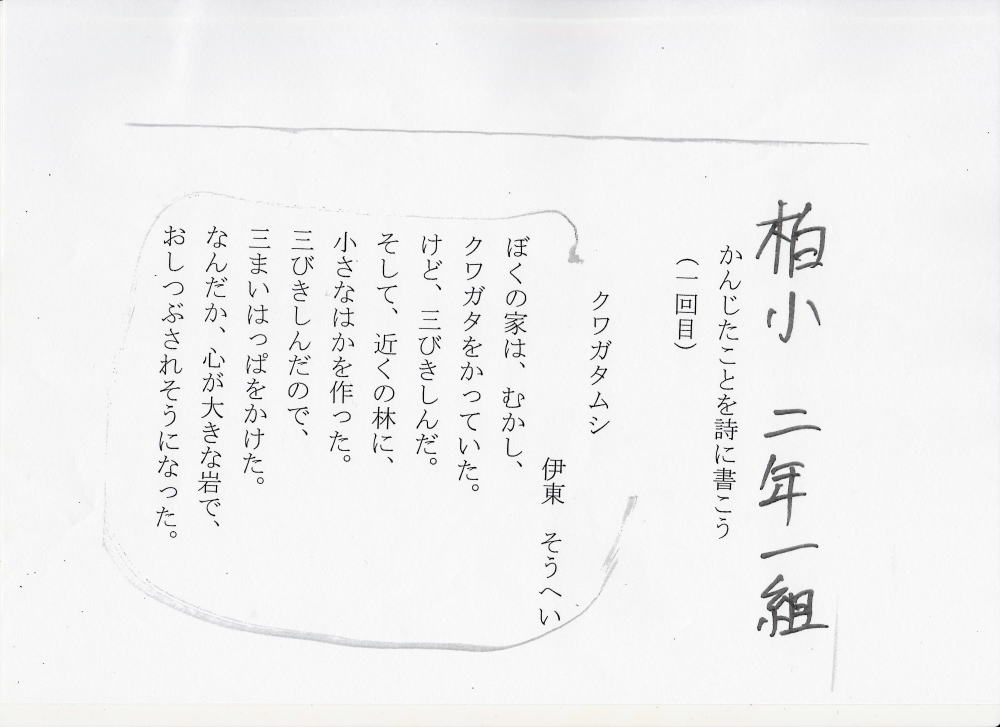 柏小 二年一組
かんじたことを詩に書こう
（一回目）
クワガタムシ
伊東 そうへい
ぼくの家は、むかし、
クワガタをかっていた。
けど、三びきしんだ。
そして、近くの林に、
小さなはかを作った。
三びきしんだので、
三まいはっぱをかけた。
なんだか、心が大きな岩で、
おしつぶされそうになった。